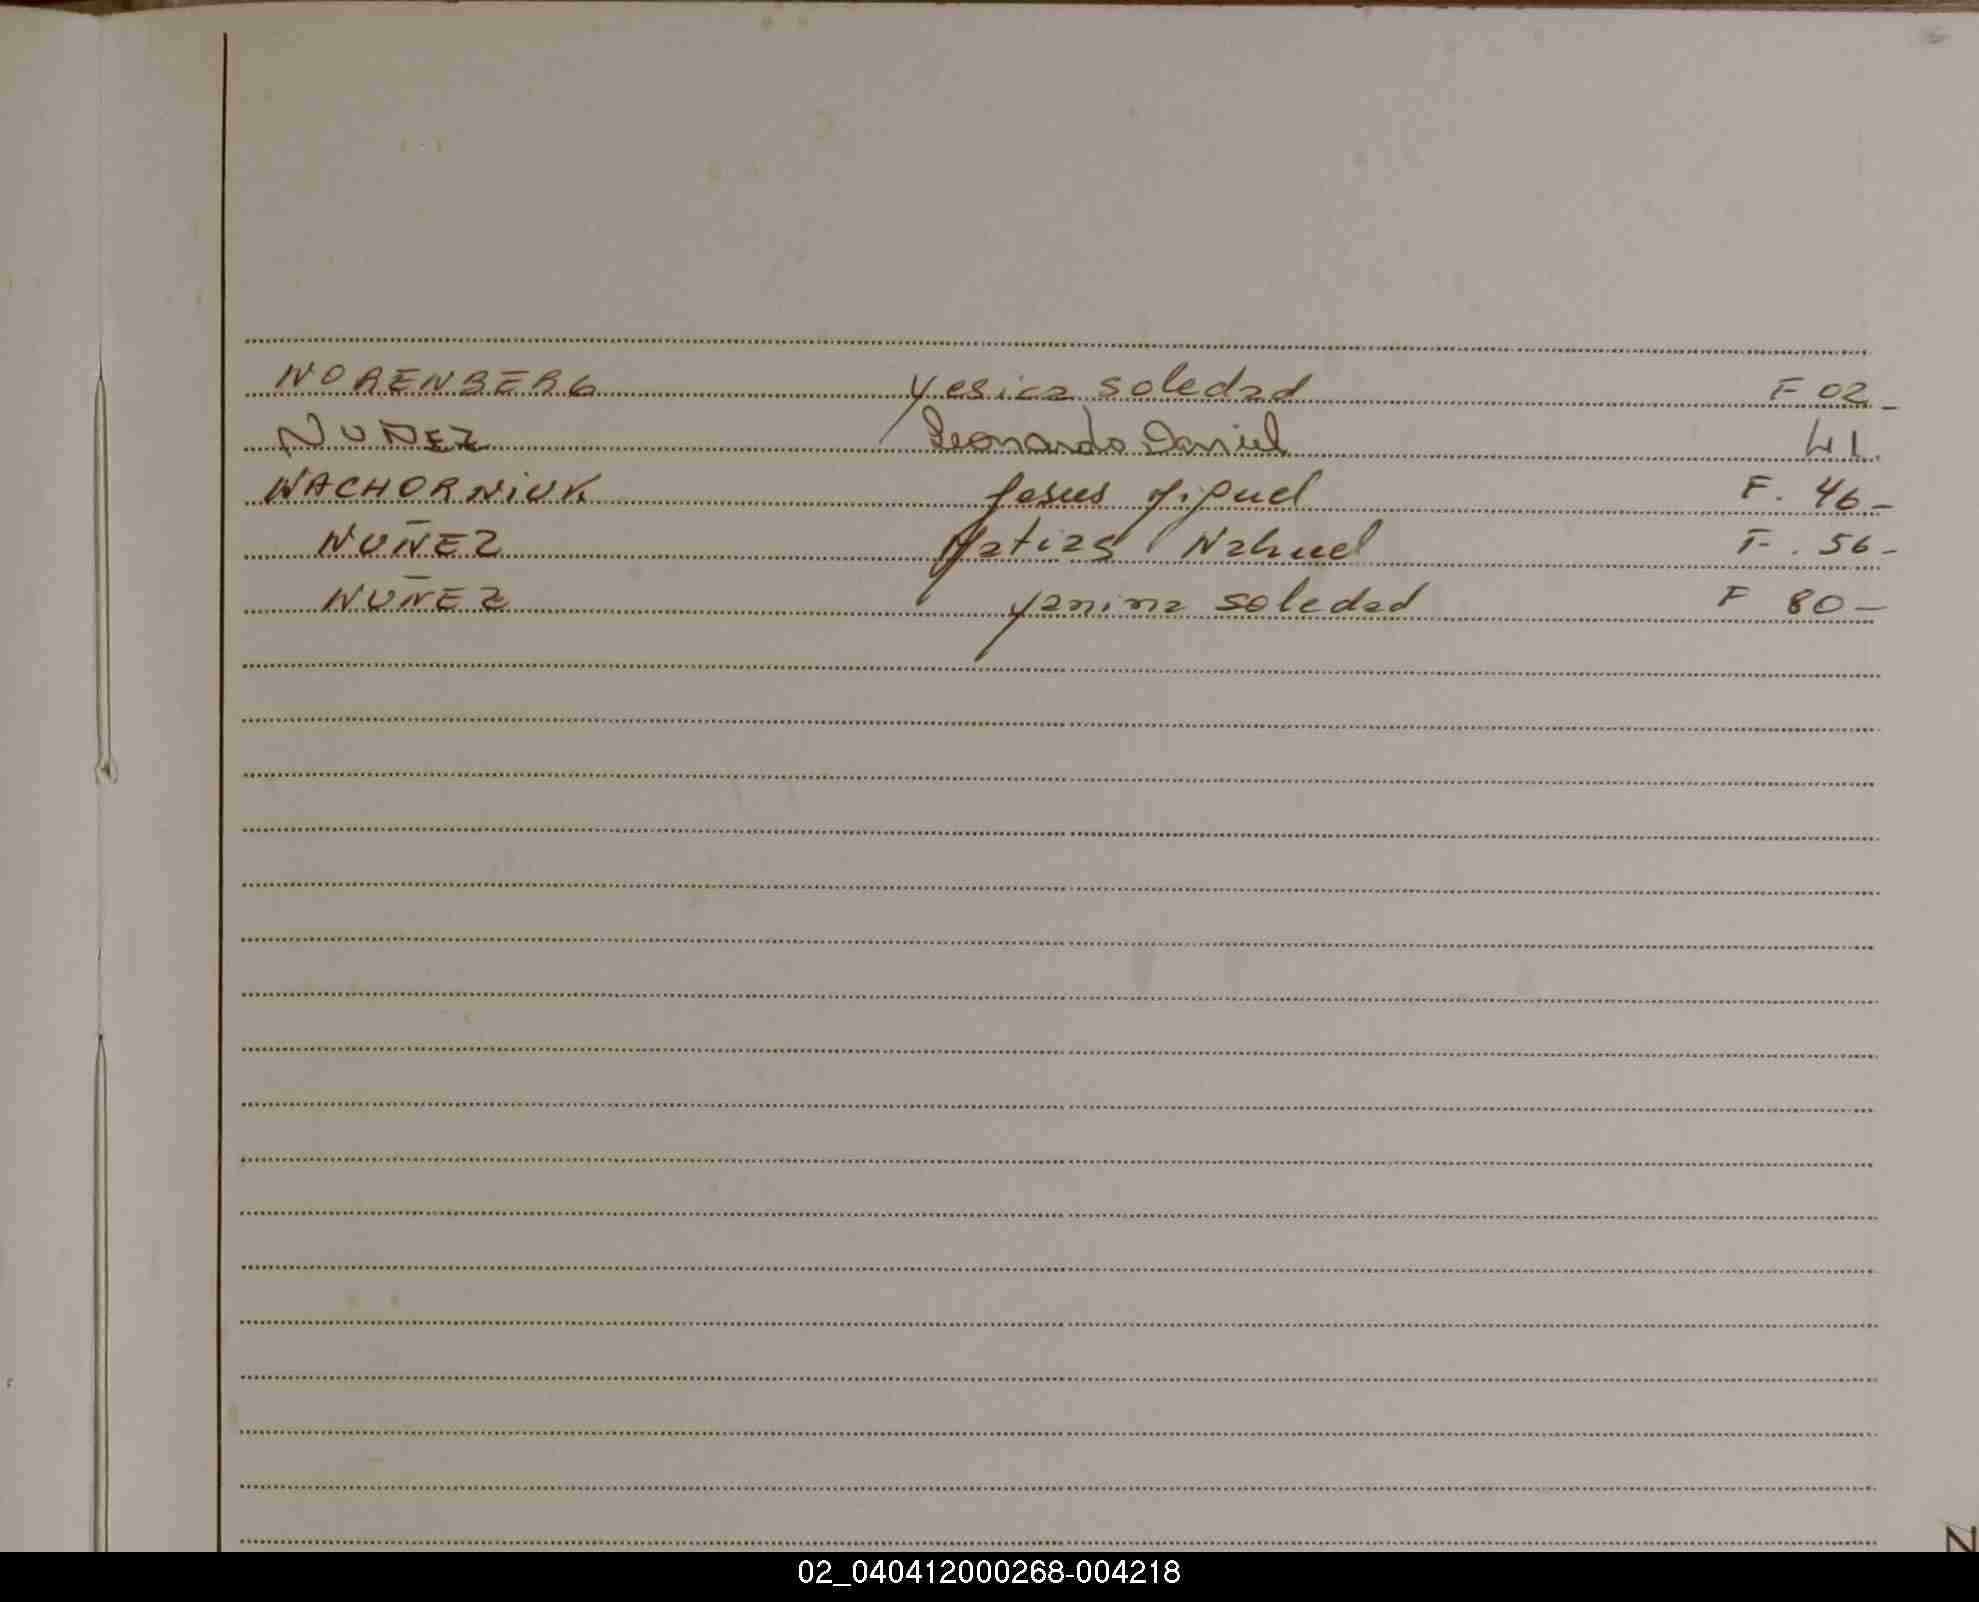 NORENBERG Yesica Soledad F 02_
NUÑEZ Leonardo Daniel 41.
WACHORNIUK Jesus Miguel F. 46_
NUÑEZ Matias Nahuel F. 56-
NUÑEZ Yanina Soledad F 80-
N
02_040412000268-004218